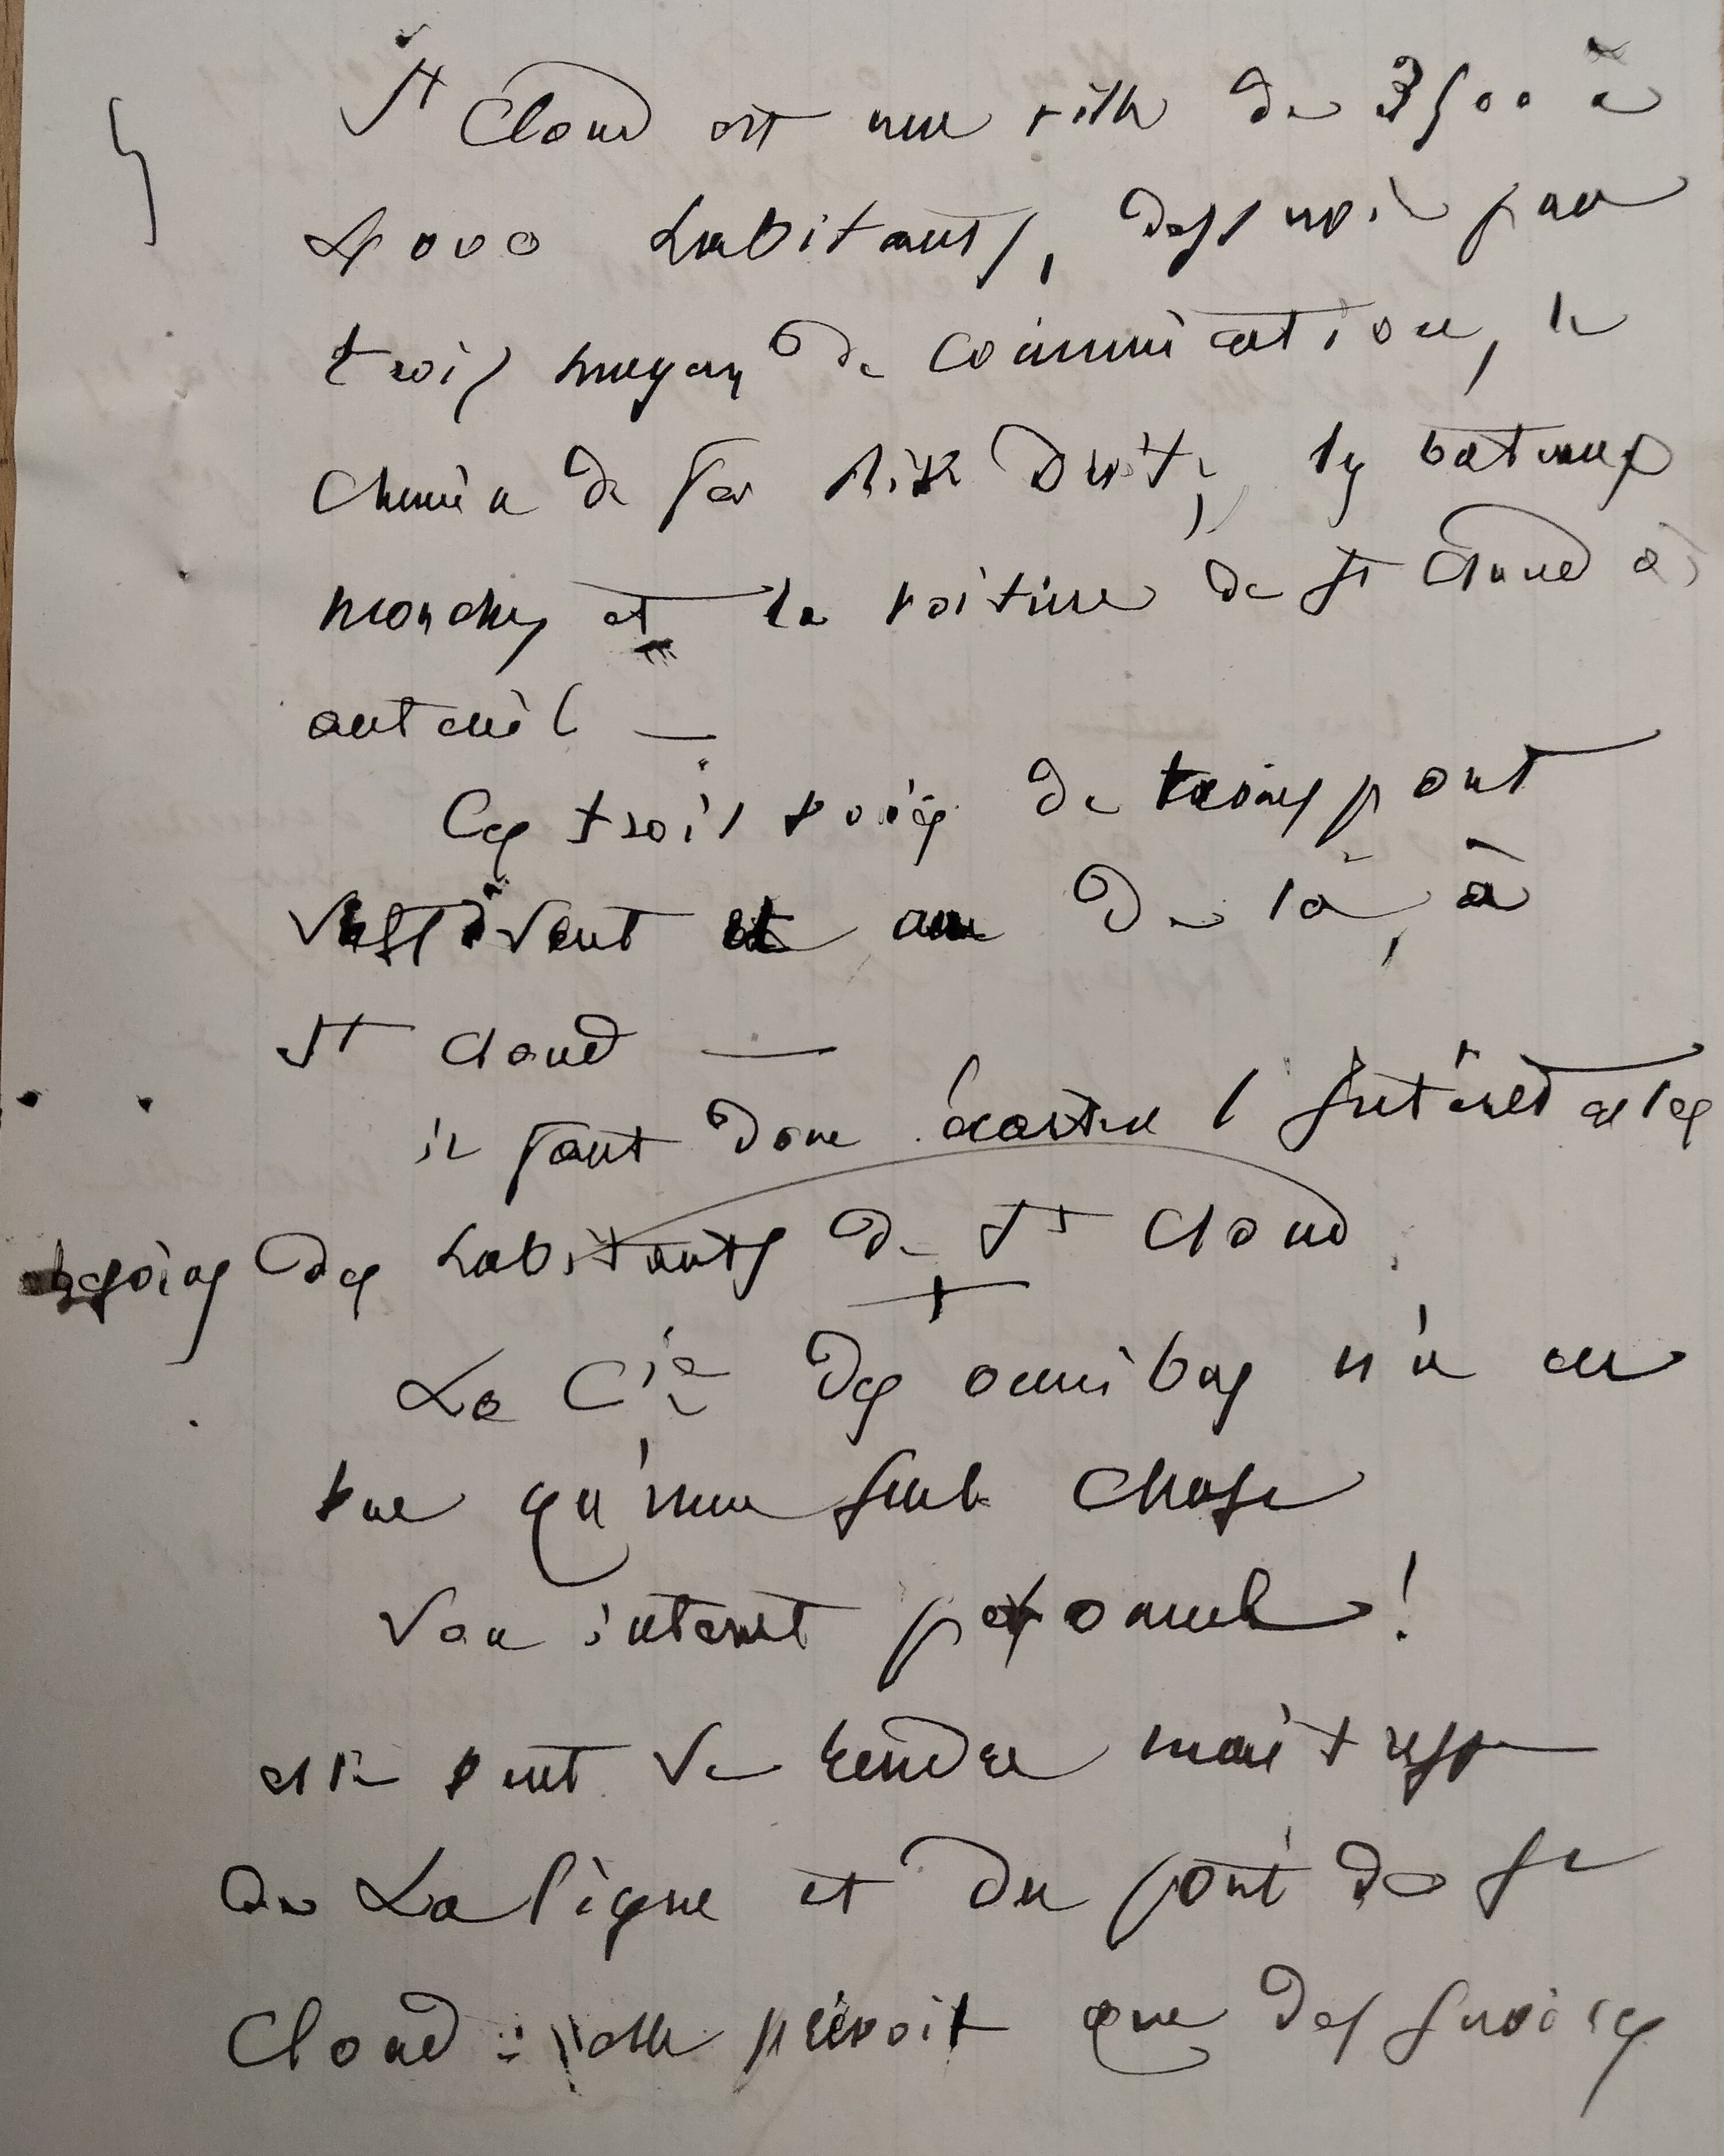 St Cloud est une ville de 3500 à
4000 habitants, desservie par
trois moyens de communication, le
chemin de fer Rive Droite, les bateaux
mouches et la voiture de St Cloud à
auteuil —
Ces trois voies de transport
suffisent et au delà, à
St Cloud —
il faut donc écarter l'intéret et les
besoins des habitants de St Cloud.
La Cie des omnibus n'a en
vue qu'une seule chose
son interet personnel !
elle veut se rendre maitresse
de La ligne et du pont de St
Cloud : elle prévoit que des